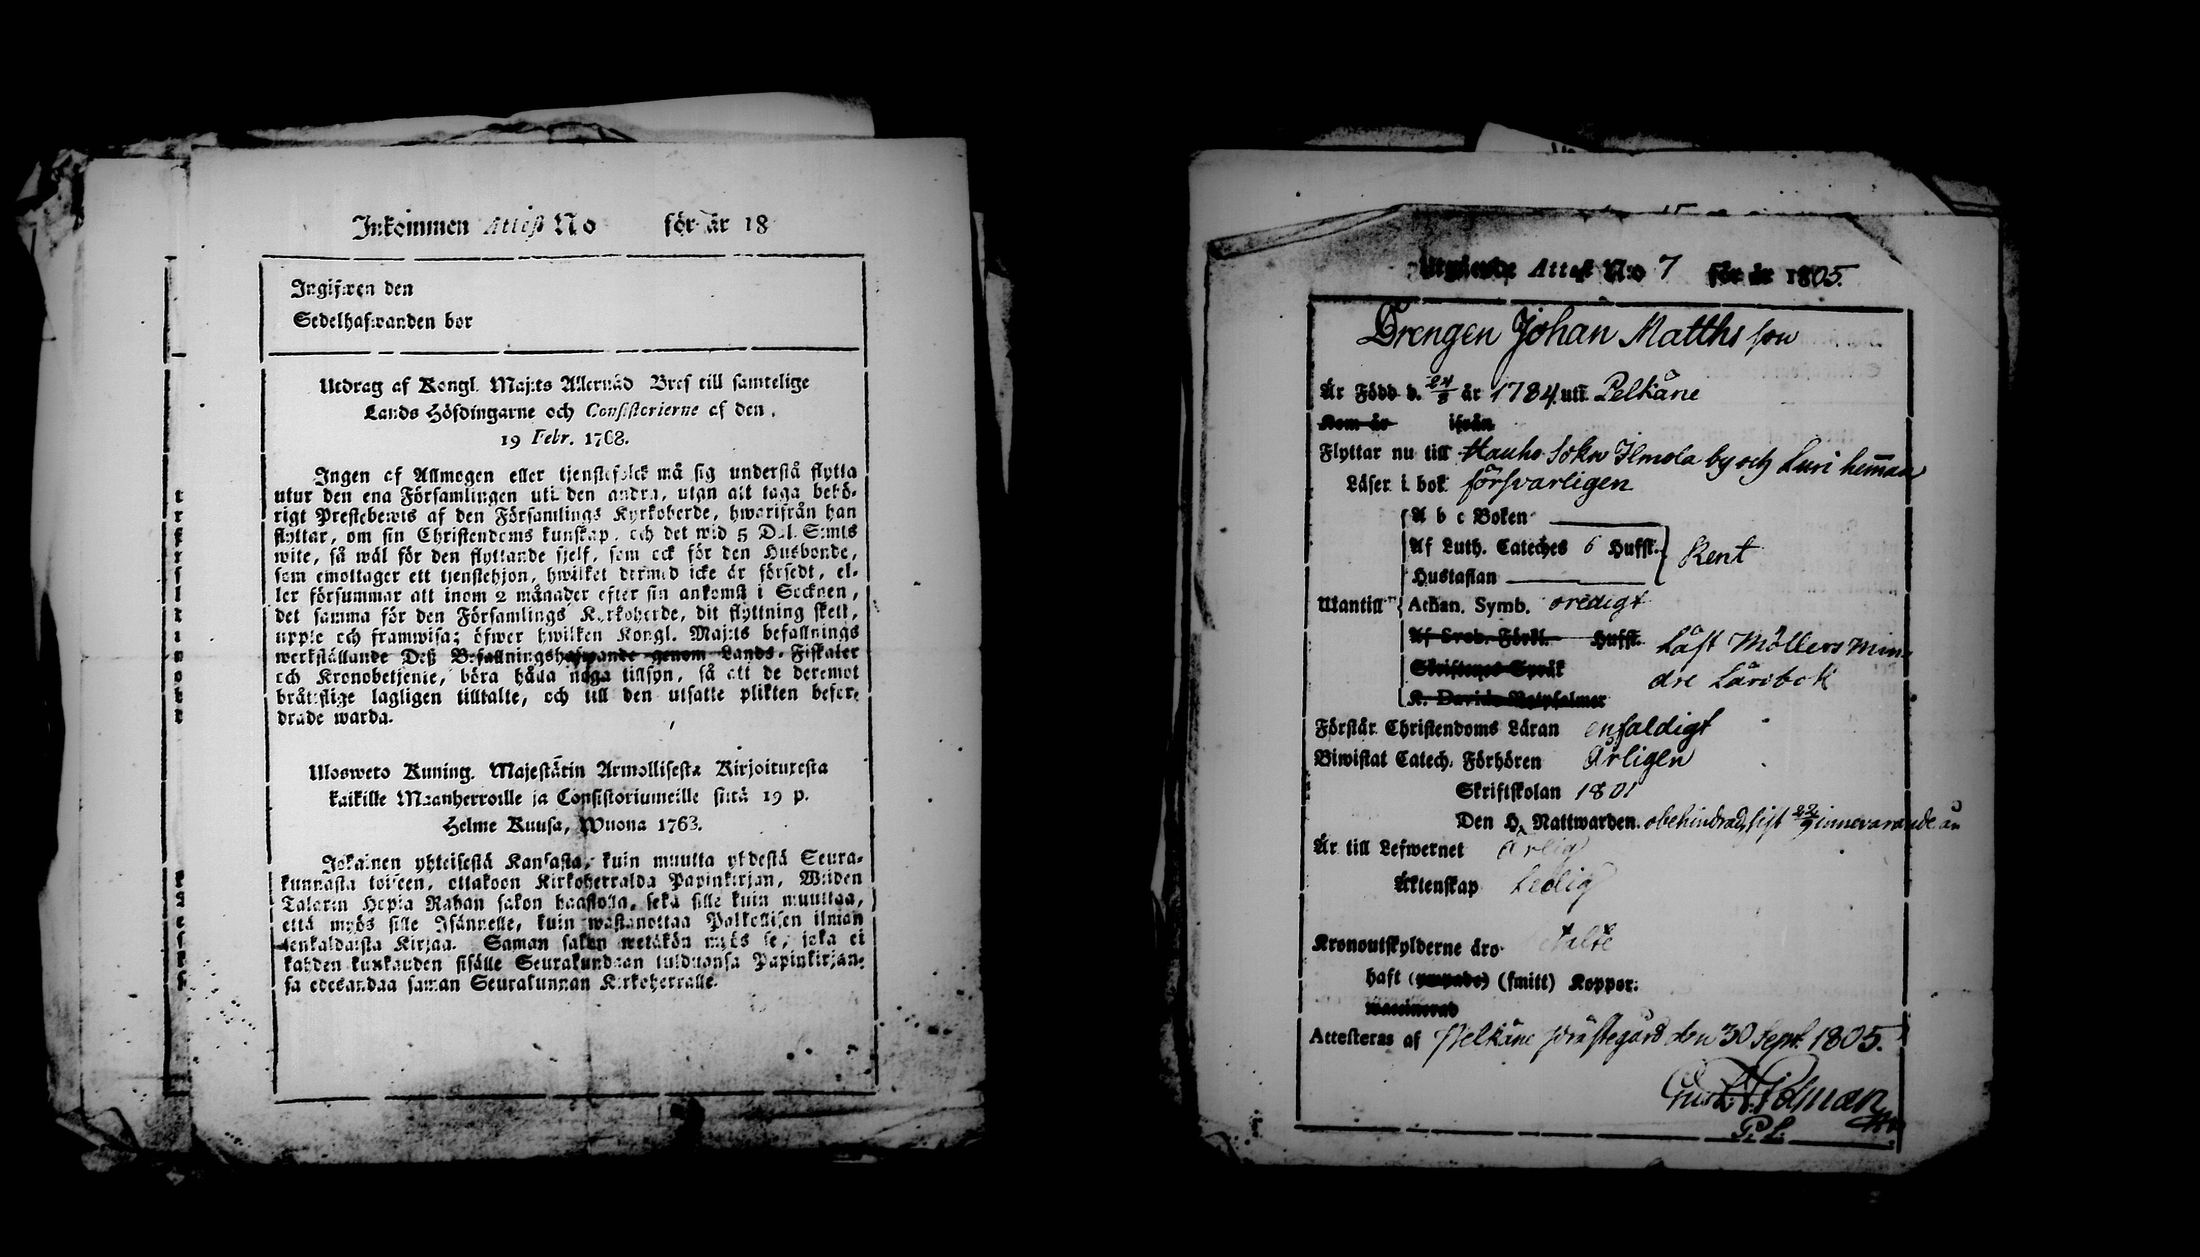 Inkommen Attest No för år 18
Ingifwen den
Sedelhafwanden bor
Utdrag af Kongl. Maj:ts Allernåd Bref till samtelige
Lands Höfdingarne och Consistorierne af den
19 Febr. 1768.
Ingen af Allmogen eller tjenstefolck må sig understå flytta
utur den ena Församlingen uti den andra, utan att taga behö-
rigt Prestebewis af den Församlings Kyrkoherde, hwarifrån han
flyttar, om sin Christendoms kunskap, och det wid 5 Dal. S:mts
wite, så wäl för den flyttande sjelf, som ock för den Husbonde,
som emottager ett tjenstehjon, hwilket dermed icke är försedt, el-
ler försummar att inom 2 månader efter sin ankomst i Socknen,
det samma för den Församlings Kyrkoherde, dit flyttning skett,
upple och framwisa; öfwer hwilken Kongl. Maj:ts befallnings
werkställande Deß Befallningshafwande genom Lands-Fiskaler
och Kronobetjenie, böra hålla noga tillsyn, så att de deremot
bråttslige lagligen tilltalte, och till den utsatte plikten befor-
drade warda.
Ulosweto Kuning. Majestätin Armollisesta Kirjoituxesta
kaikille Maanherroille ja Consistoriumeille siitä 19 p.
Helme Kuusa, Wuona 1763.
Jokainen yhteisestä Kansasta, kuin muutta yhdestä Seura-
kunnasta toiseen, ottakoon Kirkoherralda Papinkirjan, Wiiden
Talarin Hopia Rahan sakon haastolla, sekä sille kuin muuttaa,
että myös sille Isännelle, kuin wastanottaa Palkollisen ilman
senkaldaista Kirjaa. Saman sakon wetäkön myös se, joka ei
kahden kuukauden sisälle Seurakundaan tulduansa Papinkirjan-
sa edesandaa saman Seurakunnan Kirkoherralle.
Utgående Attest No 7 för år 1805.
Drengen Johan Matthsson
Är Född d. 24/8 år 1784 uti Pelkäne
Kom år ifrån
Flyttar nu till Hauho Sokn Ilmola by och Luri hemman
Läser i bok försvarligen
A b c Boken
Af Luth. Cateches 6 Hufst. Rent
Hustaflan
Utantill Athan. Symb. oredigt
Af Sveb. Förkl. Hufst. Läst Möllers Min-
Skriftenes Språk dre Lärobok
K. Davids Botpsalmer
Förstår Christendoms Läran enfaldigt
Biwistat Catech. Förhören Årligen
Skriftskolan 1801
Den H. Nattwarden obehindrad, sist 22/9 innevarande år
Är till Lefwernet Ärlig
Äktenskap Ledig
Kronoutskylderne äro betalte
haft (ympade) (smitt) Koppor:
waccinerad
Attesteras af Pelkäne Prästegård den 30 Sept. 1805.
P. L.